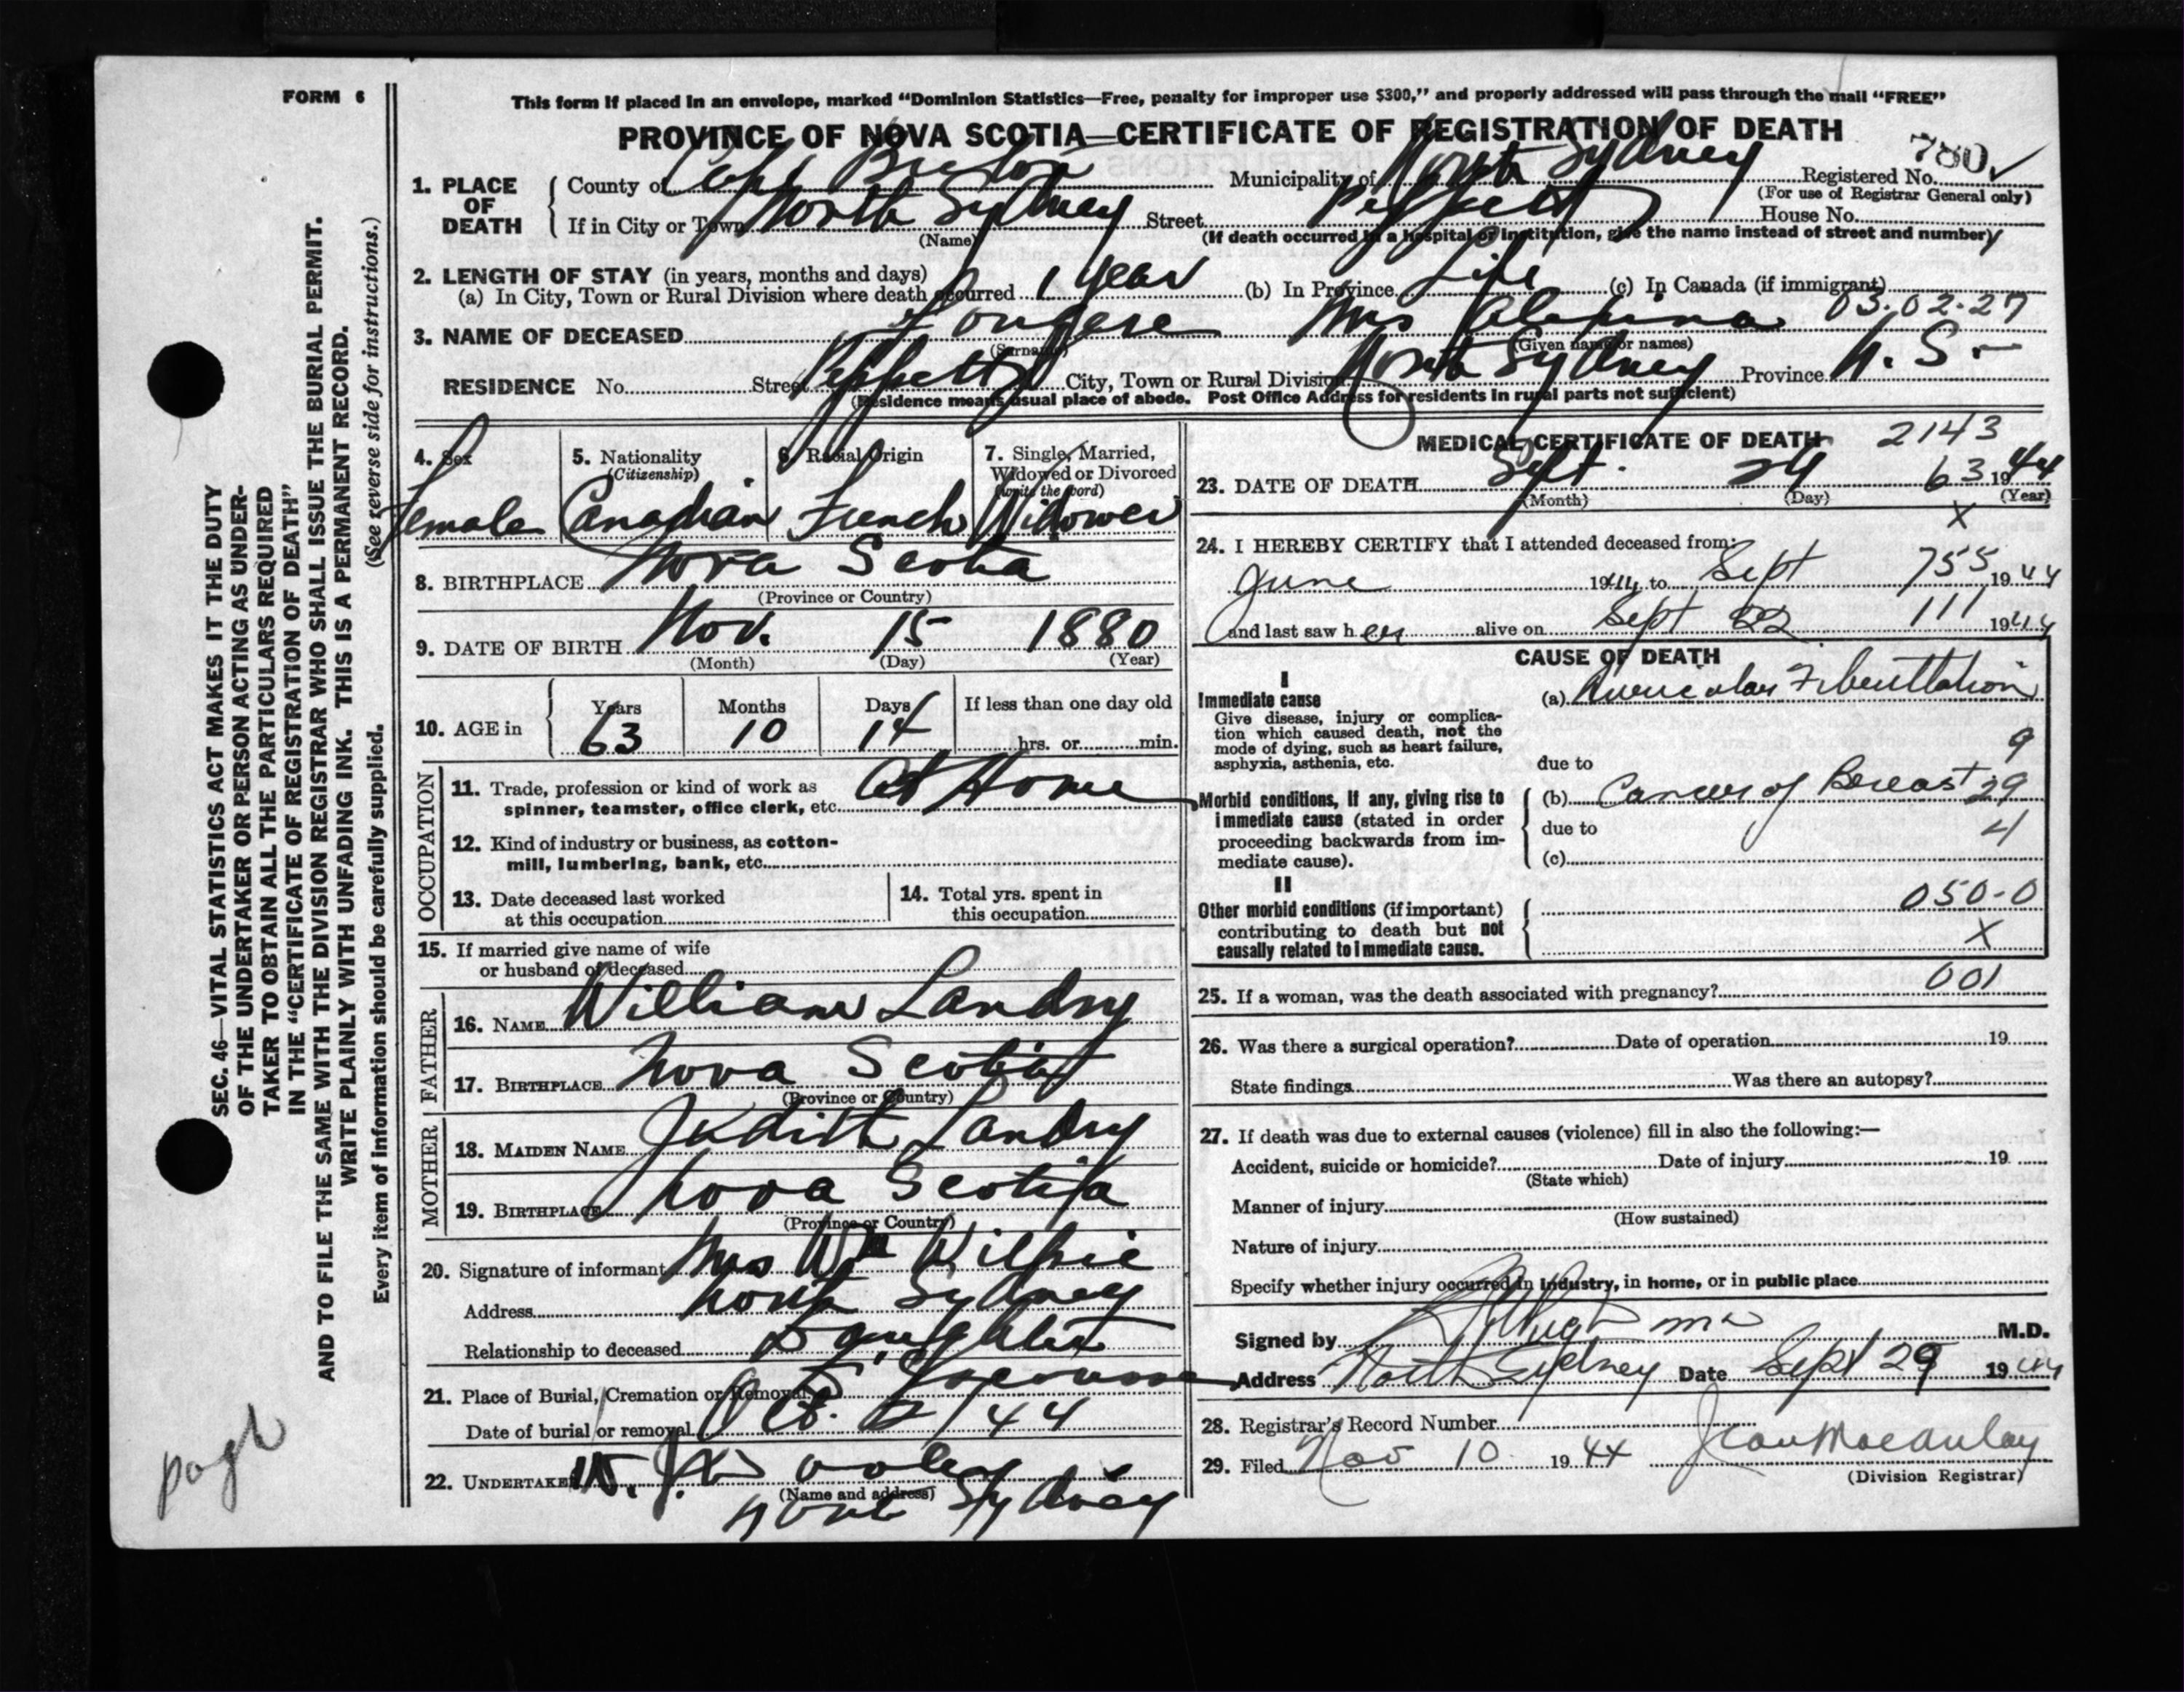 FORM 6
This form if placed in an envelope, marked “Dominion Statistics—Free, penalty for improper use $300,” and properly addressed will pass through the mail “FREE”
PROVINCE OF NOVA SCOTIA—CERTIFICATE OF REGISTRATION OF DEATH
780 ✓
1. PLACE OF DEATH
County of Cape Breton Municipality of North Sydney Registered No.
(For use of Registrar General only)
If in City or Town North Sydney Street Peppett House No.
(Name) (If death occurred in a hospital or institution, give the name instead of street and number)
2. LENGTH OF STAY (in years, months and days)
(a) In City, Town or Rural Division where death occurred 1 year (b) In Province Life (c) In Canada (if immigrant)
03.02.27
3. NAME OF DECEASED Fougere Mrs
(Surname) (Given name or names)
RESIDENCE No. Street Peppett City, Town or Rural Division North Sydney Province N. S.
(Residence means usual place of abode. Post Office Address for residents in rural parts not sufficient)
4. Sex Female
5. Nationality (Citizenship) Canadian
6. Racial Origin French
7. Single, Married, Widowed or Divorced (write the word) Widower
8. BIRTHPLACE Nova Scotia
(Province or Country)
9. DATE OF BIRTH Nov. 15 1880
(Month) (Day) (Year)
10. AGE in Years 63 Months 10 Days 14 If less than one day old
hrs. or min.
OCCUPATION
11. Trade, profession or kind of work as spinner, teamster, office clerk, etc. At Home
12. Kind of industry or business, as cotton-mill, lumbering, bank, etc.
13. Date deceased last worked at this occupation
14. Total yrs. spent in this occupation
15. If married give name of wife or husband of deceased
FATHER
16. NAME William Landry
17. BIRTHPLACE Nova Scotia
(Province or Country)
MOTHER
18. MAIDEN NAME Judith Landry
19. BIRTHPLACE Nova Scotia
(Province or Country)
20. Signature of informant Mrs Wm Wilkie
Address North Sydney
Relationship to deceased Daughter
21. Place of Burial, Cremation or Removal
Date of burial or removal Oct. 2/44
22. UNDERTAKER W. J. Dooley
(Name and address)
North Sydney
MEDICAL CERTIFICATE OF DEATH 2143
23. DATE OF DEATH Sept. 29 63 1944
(Month) (Day) (Year)
X
24. I HEREBY CERTIFY that I attended deceased from:
June 1944 to Sept 755 1944
and last saw her alive on Sept 22 111 1944
CAUSE OF DEATH
I
Immediate cause
Give disease, injury or complication which caused death, not the mode of dying, such as heart failure, asphyxia, asthenia, etc.
(a) Auricular Fibrillation
9
due to
Morbid conditions, if any, giving rise to immediate cause (stated in order proceeding backwards from immediate cause).
(b) Cancer of Breast 29
due to 4
(c)
II
Other morbid conditions (if important) contributing to death but not causally related to immediate cause.
050-0
X
25. If a woman, was the death associated with pregnancy? 001
26. Was there a surgical operation? Date of operation 19
State findings Was there an autopsy?
27. If death was due to external causes (violence) fill in also the following:—
Accident, suicide or homicide? Date of injury 19
(State which)
Manner of injury
(How sustained)
Nature of injury
Specify whether injury occurred in industry, in home, or in public place
Signed by M.D.
Address North Sydney Date Sept 29 1944
28. Registrar's Record Number
29. Filed Nov 10 1944 Jean Macaulay
(Division Registrar)
SEC. 46—VITAL STATISTICS ACT MAKES IT THE DUTY
OF THE UNDERTAKER OR PERSON ACTING AS UNDER-
TAKER TO OBTAIN ALL THE PARTICULARS REQUIRED
IN THE “CERTIFICATE OF REGISTRATION OF DEATH”
AND TO FILE THE SAME WITH THE DIVISION REGISTRAR WHO SHALL ISSUE THE BURIAL PERMIT.
WRITE PLAINLY WITH UNFADING INK. THIS IS A PERMANENT RECORD.
Every item of information should be carefully supplied. (See reverse side for instructions.)